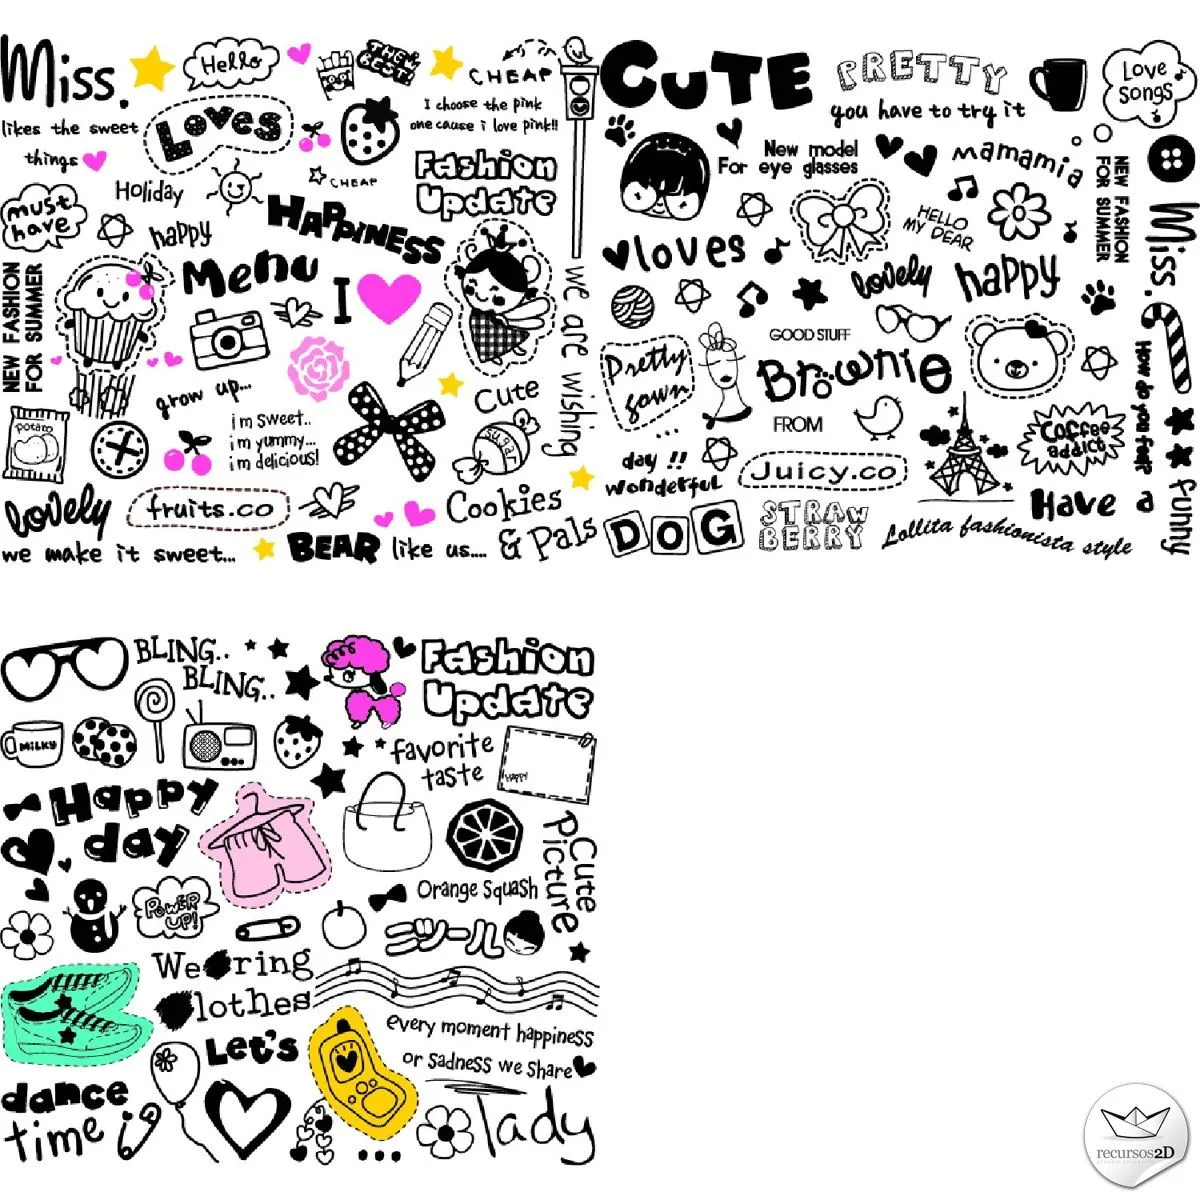 Miss.
Hello
THE
BEST!
CHEAP
likes the sweet
things
Loves
I choose the pink
one cause i love pink!!
CHEAP
Fashion
Update
Holiday
must
have
happy
HAPPINESS
NEW FASHION
FOR SUMMER
Menu
I
we are wishing
grow up...
Cute
i'm sweet..
i'm yummy...
i'm delicious!
Potato
sugar
Lovely
fruits.co
Cookies
& Pals
we make it sweet...
BEAR like us....
CUTE
PRETTY
you have to try it
Love
songs
For
New model
eye glasses
mamamia
NEW FASHION
FOR SUMMER
Miss.
HELLO
MY DEAR
loves
lovely
happy
GOOD STUFF
Pretty
gown
Brownie
FROM
How do you feel
Coffee
addict
day !!
wonderful
Juicy.co
Have a
Funny
DOG
STRAW
BERRY
Lollita fashionista style
BLING..
BLING..
Fashion
Update
MILKY
favorite
taste
HAPPY
Happy
day
Cute
Picture
Orange Squash
POWER
UP!
ニツール
Wearing
clothes
every moment happiness
or sadness we share
Let's
dance
time
lady
recursos2D